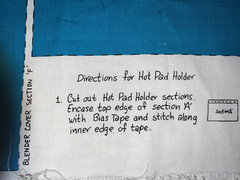 Directions for Hot Pad Holder
1. Cut out Hot Pad Holder sections.
Encase top edge of section 'A'
with Bias Tape and stitch along
inner edge of tape.
BLENDER COVER SECTION 'F'